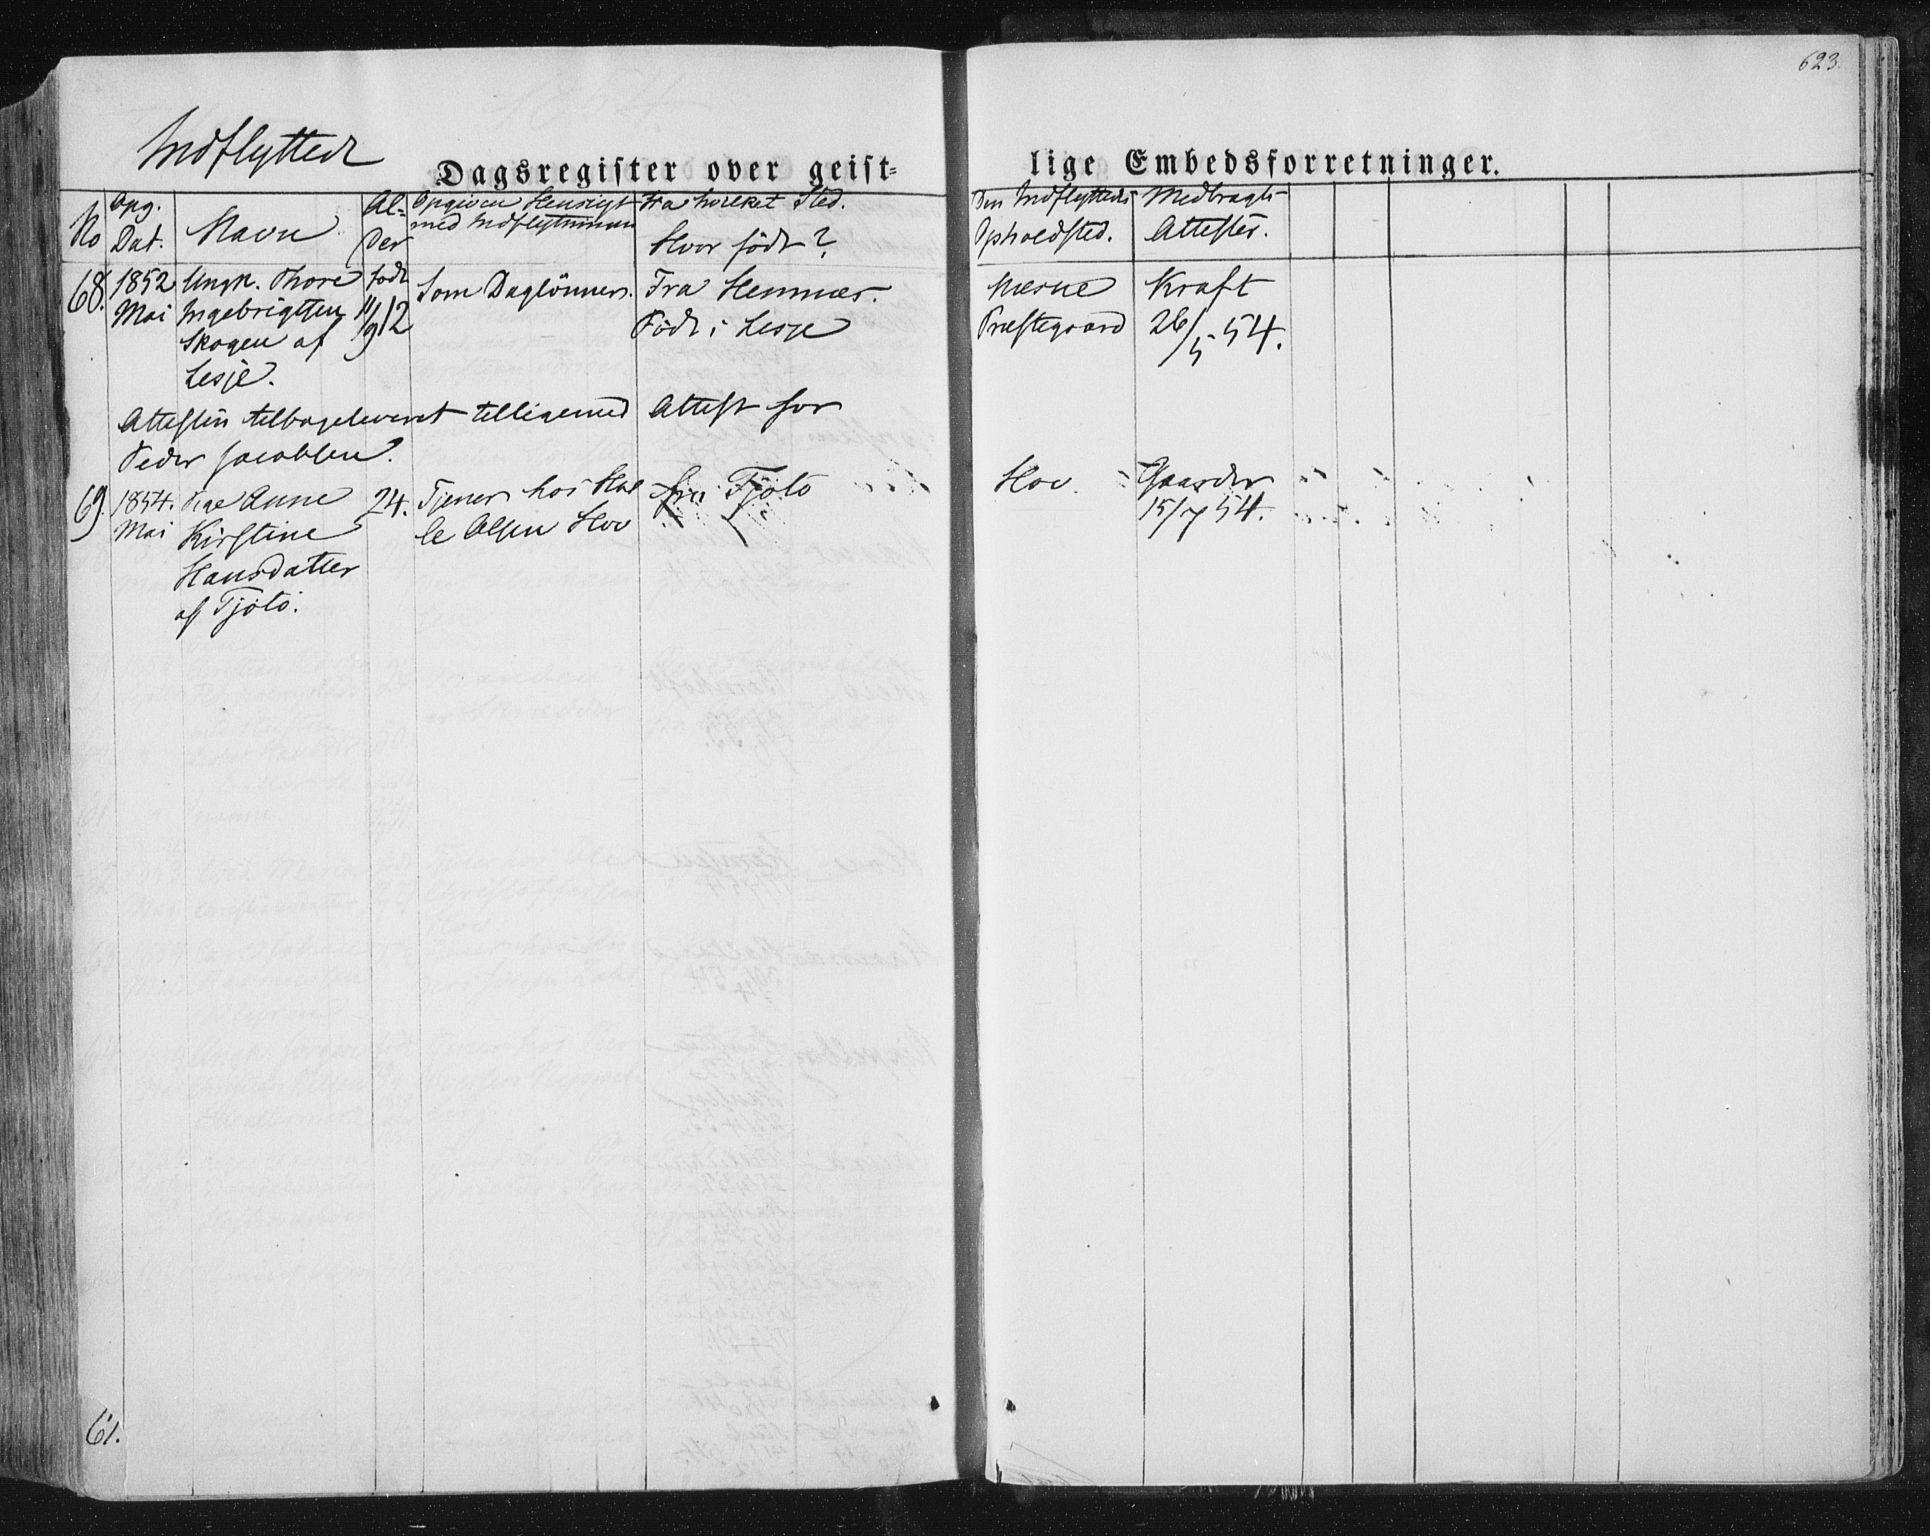 623.
Indflyttede
Dagsregister over geist-
lige Embedsforretninger.
No
Opg.
Dat.
Navn
Al-
der
Opgiven Hensigt
med Indflytningen
Fra hvilket Sted.
Hvor født?
Den Indflyttedes
Opholdsted.
Medbragte
Attester.
68.
1852
Mai
Ungk. Thore
Ingebrigtsen
Skogen af
Lesje.
født
11/9 12
Som Daglönner.
Fra Hemnæs.
Født i Lesje
Næsne
Præstegaard
Kraft
26/5 54.
Attesten tilbageleveret tilligemed Attest for
Peder Jacobsen.
69.
1854.
Mai
Pige Anne
Kirstine
Hansdatter
af Tjötö.
24.
Tjener hos
Olsen Hov
fra Tjötö
Hov.
15/7 54.
61.